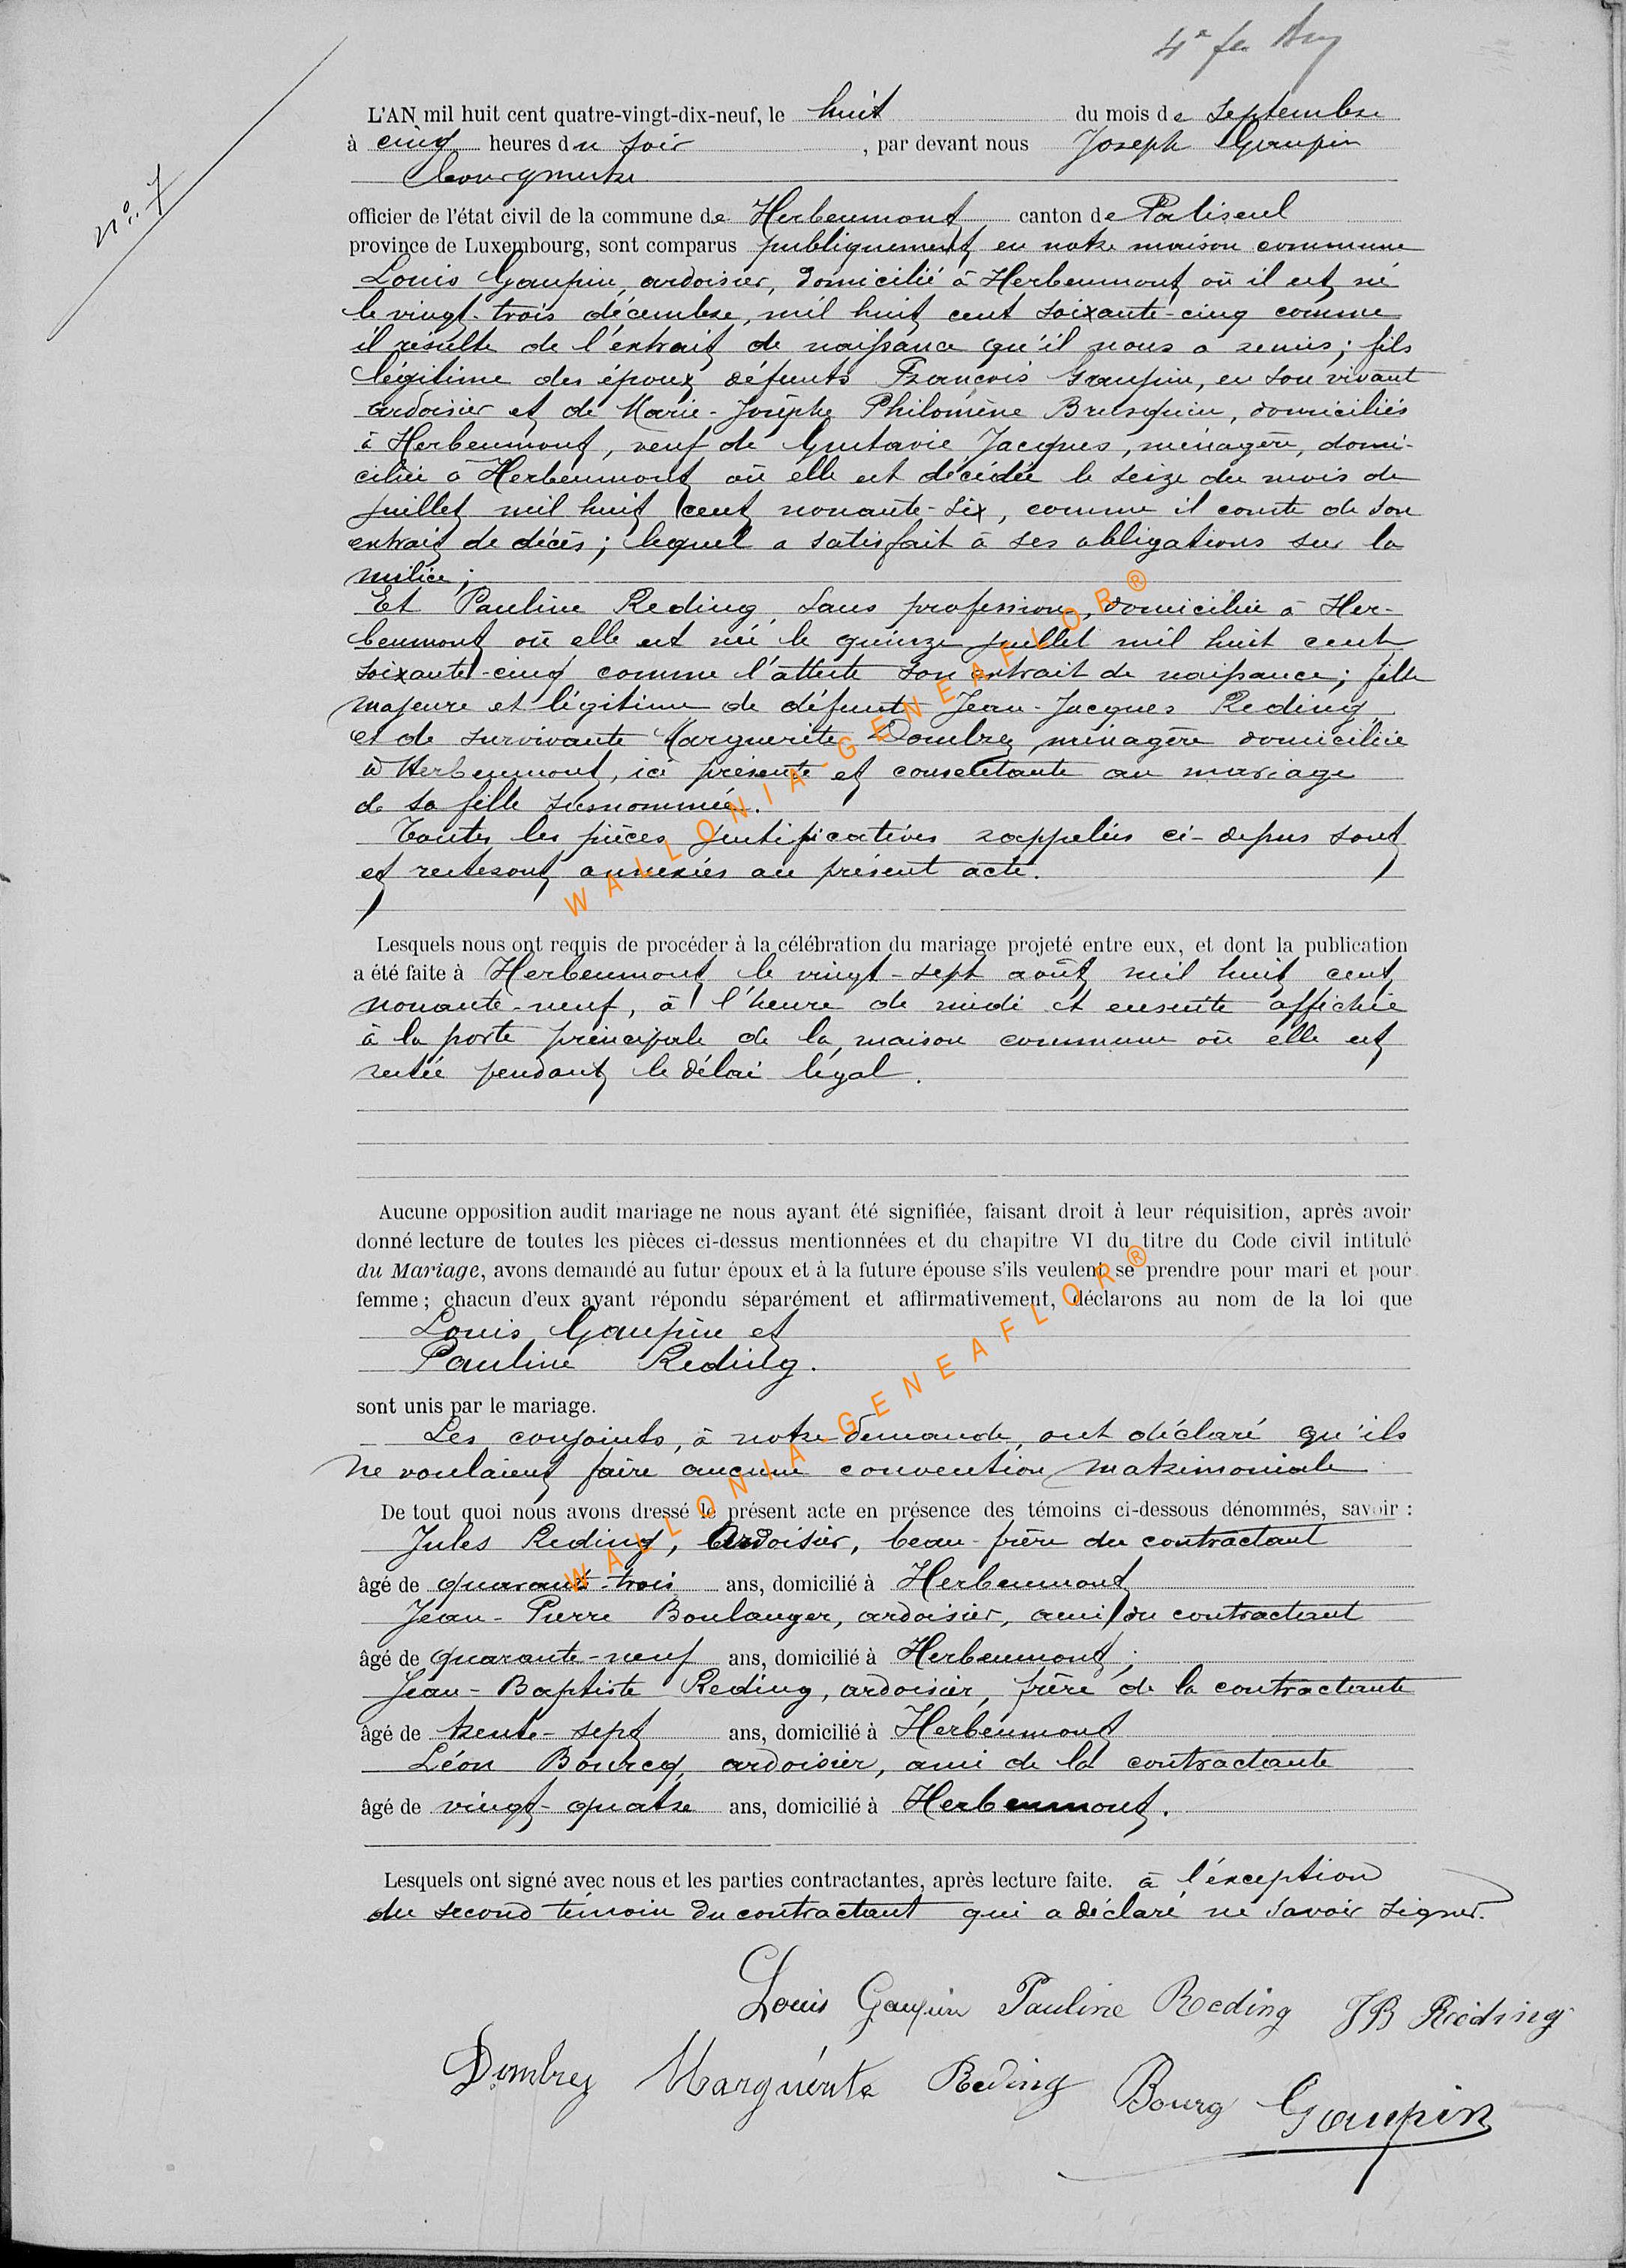 n°. 7
L'AN mil huit cent quatre-vingt-dix-neuf, le huit du mois de Septembre
à cinq heures du soir, par devant nous Joseph Gaupin
bourgmestre
officier de l'état civil de la commune de Herbeumont canton de Paliseul
province de Luxembourg, sont comparus publiquement en notre maison commune
Louis Gaupin, ardoisier, domicilié à Herbeumont où il est né
le vingt-trois décembre, mil huit cent soixante-cinq comme
il résulte de l'extrait de naissance qu'il nous a remis; fils
légitime des époux défunts François Gaupin, en son vivant
ardoisier et de Marie-Josèphe Philomène Brusquin, domiciliés
à Herbeumont, veuf de Gustavie Jacques, ménagère, domi-
ciliée à Herbeumont où elle est décédée le seize du mois de
juillet mil huit cent nonante-six, comme il conste de son
extrait de décès; lequel a satisfait à ses obligations sur la
milice;
Et Pauline Reding, sans profession, domiciliée à Her-
beumont où elle est née le quinze juillet mil huit cent
soixante-cinq comme l'atteste son extrait de naissance; fille
majeure et légitime de défunt Jean-Jacques Reding
et de survivante Marguerite Dombrey ménagère domiciliée
à Herbeumont, ici présente et consentante au mariage
de sa fille susnommée.
Toutes les pièces justificatives rappelées ci-dessus sont
et resteront annexées au présent acte.
Lesquels nous ont requis de procéder à la célébration du mariage projeté entre eux, et dont la publication
a été faite à Herbeumont le vingt-sept août mil huit cent
nonante-neuf, à l'heure de midi et ensuite affichée
à la porte principale de la maison commune où elle est
restée pendant le délai légal.
Aucune opposition audit mariage ne nous ayant été signifiée, faisant droit à leur réquisition, après avoir
donné lecture de toutes les pièces ci-dessus mentionnées et du chapitre VI du titre du Code civil intitulé
du Mariage, avons demandé au futur époux et à la future épouse s'ils veulent se prendre pour mari et pour
femme; chacun d'eux ayant répondu séparément et affirmativement, déclarons au nom de la loi que
Louis Gaupin et
Pauline Reding.
sont unis par le mariage.
Les conjoints, à notre demande, ont déclaré qu'ils
ne voulaient faire aucune convention matrimoniale
De tout quoi nous avons dressé le présent acte en présence des témoins ci-dessous dénommés, savoir :
Jules Reding, ardoisier, beau-frère du contractant
âgé de quarante-trois ans, domicilié à Herbeumont
Jean-Pierre Boulanger, ardoisier, ami du contractant
âgé de quarante-neuf ans, domicilié à Herbeumont;
Jean-Baptiste Reding, ardoisier, frère de la contractante
âgé de trente-sept ans, domicilié à Herbeumont
Léon Bourcq, ardoisier, ami de la contractante
âgé de vingt-quatre ans, domicilié à Herbeumont.
Lesquels ont signé avec nous et les parties contractantes, après lecture faite. à l'exception
du second témoin du contractant qui a déclaré ne savoir signer.
Louis Gaupin Pauline Reding JB Reding
Dombrey Marguerite Reding Bourg Gaupin
WALLONIA-GENEAFLOR®
WALLONIA-GENEAFLOR®